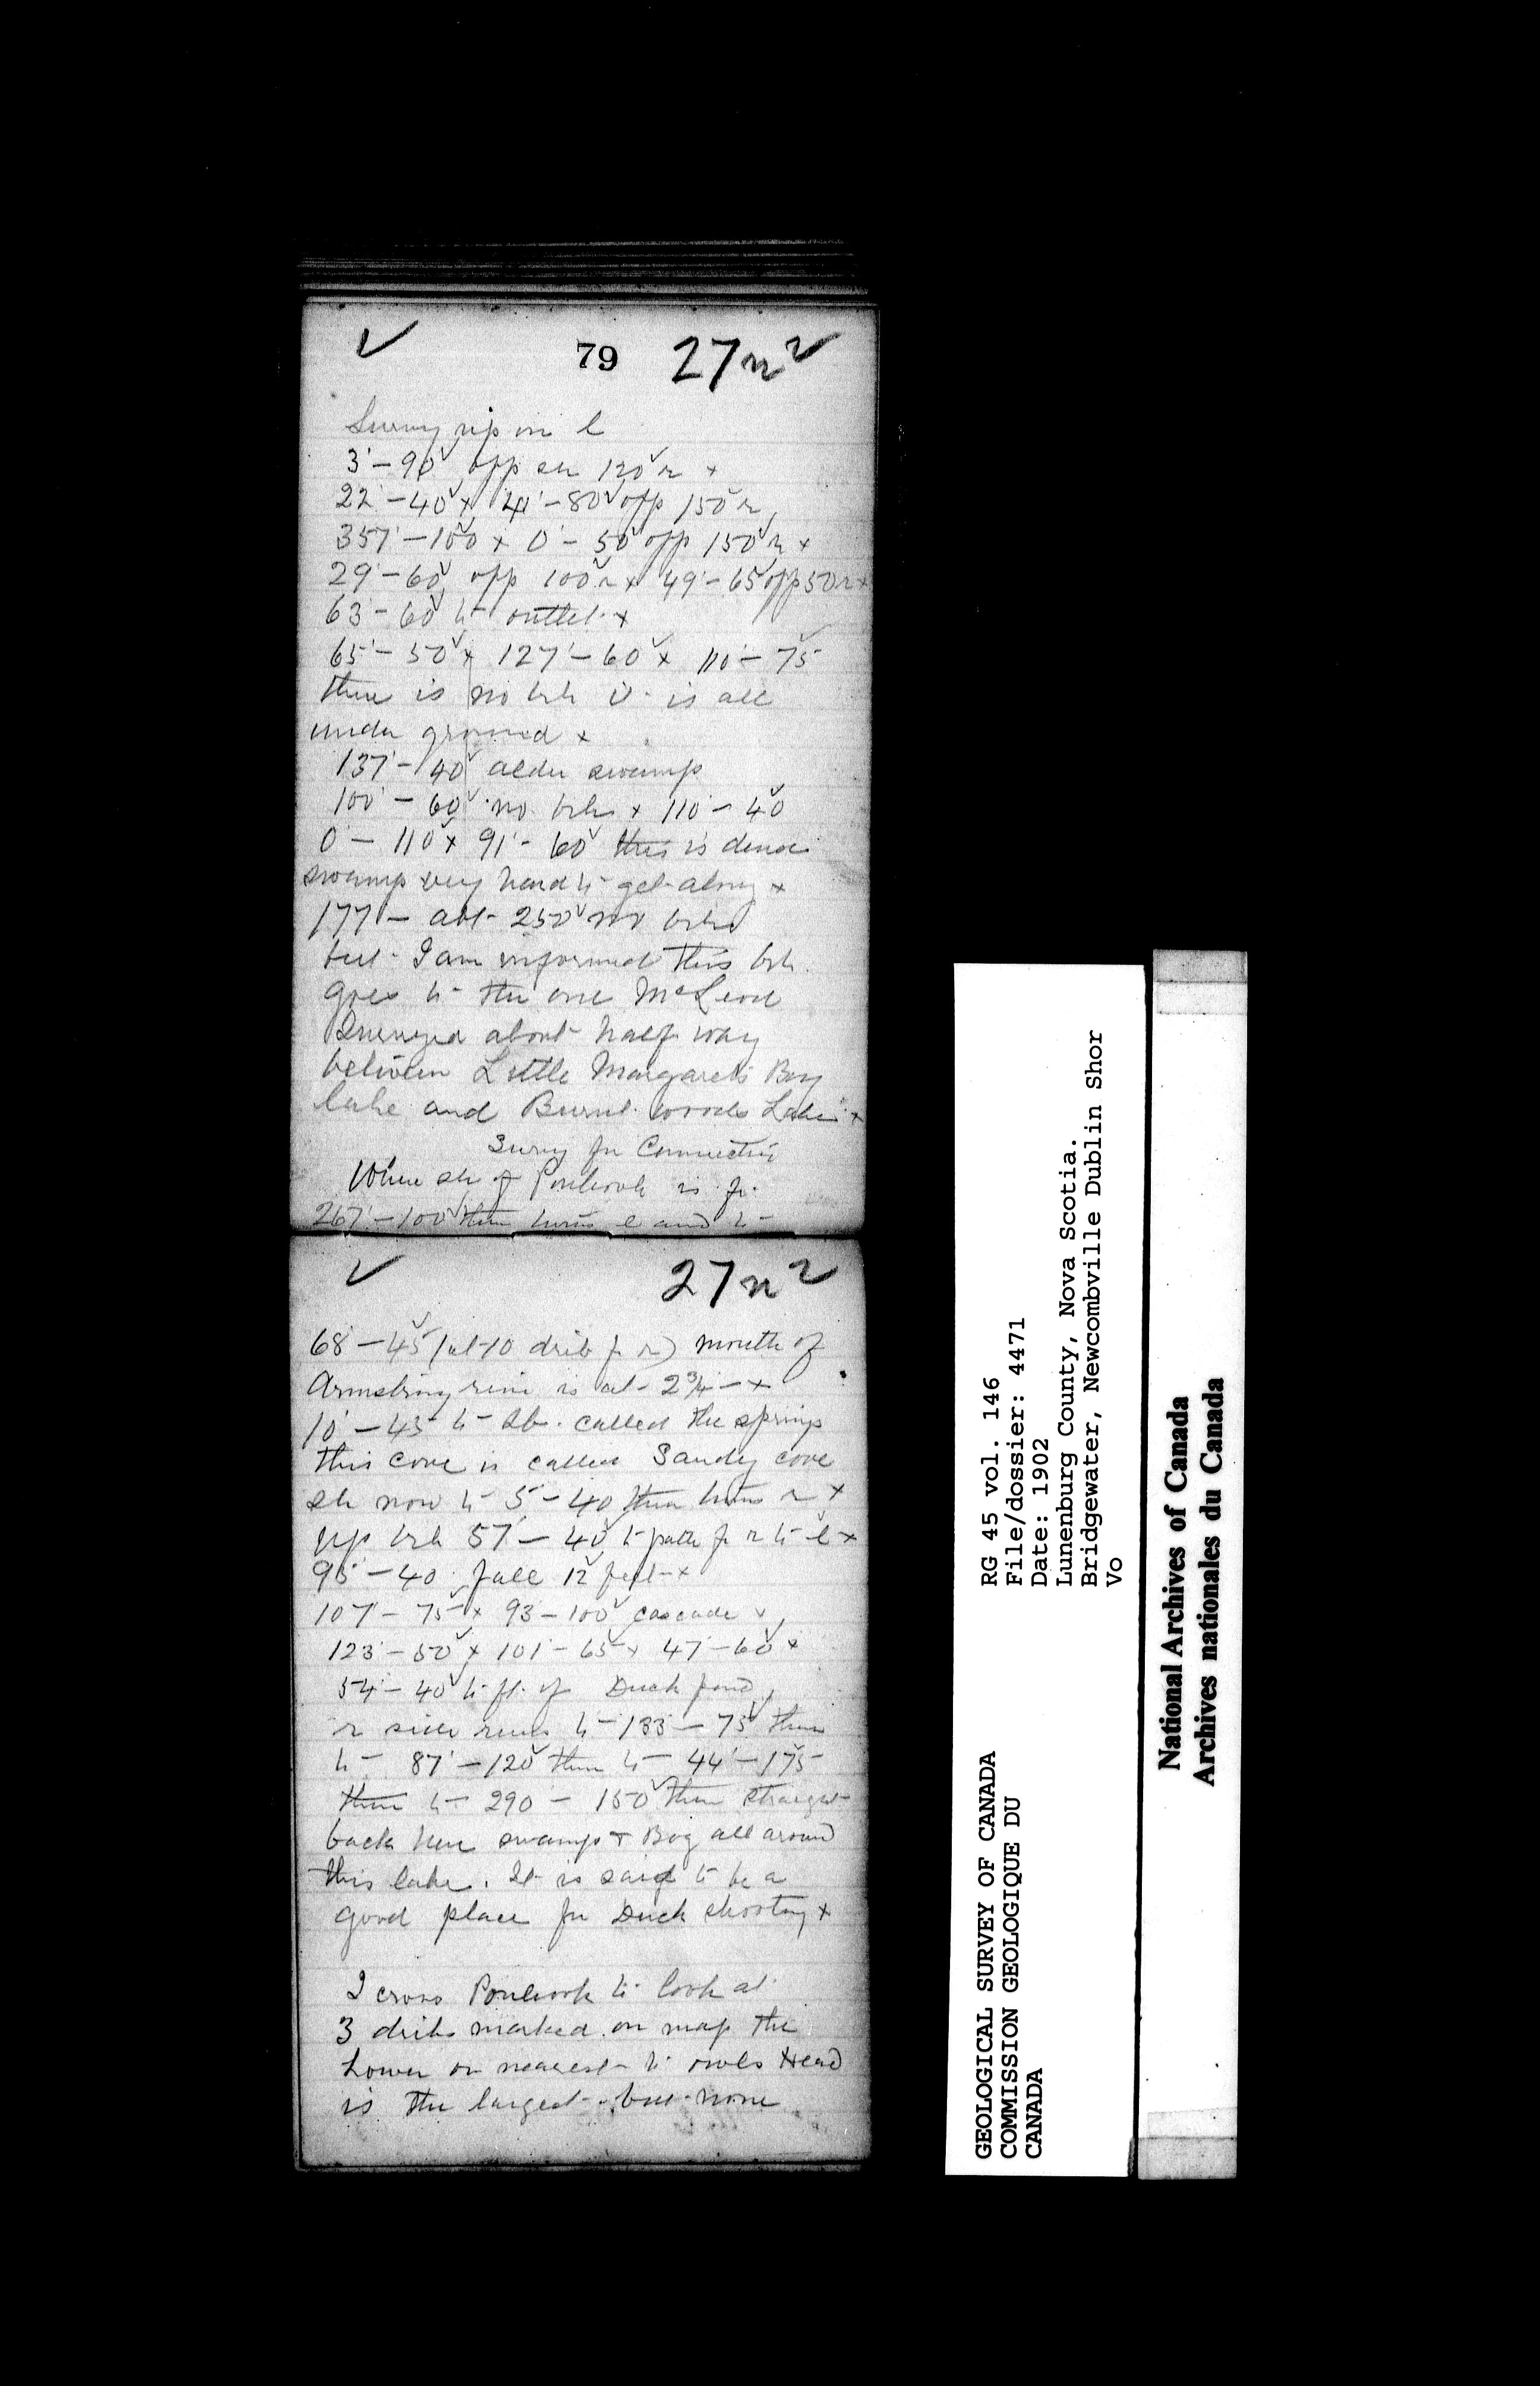 ✓ 79 27n²
Survey up on l
3' – 90 opp sh 120 r x
22' – 40 x 41' – 80 opp 150 r
357' – 100 x 0' – 50 opp 150 r x
29' – 60 opp 100 r x 49' – 65 opp 50 r x
63' – 60 to outlet x
65' – 50 x 127' – 60 x 110' – 75
there is no brk it is all
under ground x
137' – 40 alder swamp
100' – 60 no brk x 110 – 40
0' – 110 x 91' – 60 this is dense
swamp very hard to get along x
177 – abt 250 no brk
but I am informed this brk
goes to the one McLeod
Surveyed about half way
between Little Margarets Bay
lake and Burnt woods Lake x
Survey for Connection
When sh of Ponhook is fr
267' – 100 then turns l and to
✓ 27n²
68' – 45 (at 10 drib fr r) mouth of
Armstrong is at 2¾ – x
10' – 45 to called the springs
this cove is called Sandy cove
sh now to 5' – 40 then turns r x
up brk 57' – 40 to path fr r to l x
95' – 40 fall 12 feet x
107' – 75 x 93 – 100 cascade x
123' – 50 x 101' – 65 x 47' – 60 x
54' – 40 to ft of Duck pond
r side runs to 133 – 75 then
to 87' – 120 then to 44' – 175
then to 290 – 150 then straight
back here swamp + Bog all around
this lake. It is said to be a
good place for Duck shooting x
I cross Ponhook to look at
3 dribs marked on map the
Lower or nearest to owls Head
is the largest but none
GEOLOGICAL SURVEY OF CANADA
COMMISSION GEOLOGIQUE DU
CANADA
RG 45 vol. 146
File/dossier: 4471
Date: 1902
Lunenburg County, Nova Scotia.
Bridgewater, Newcombville Dublin Shor
Vo
National Archives of Canada
Archives nationales du Canada